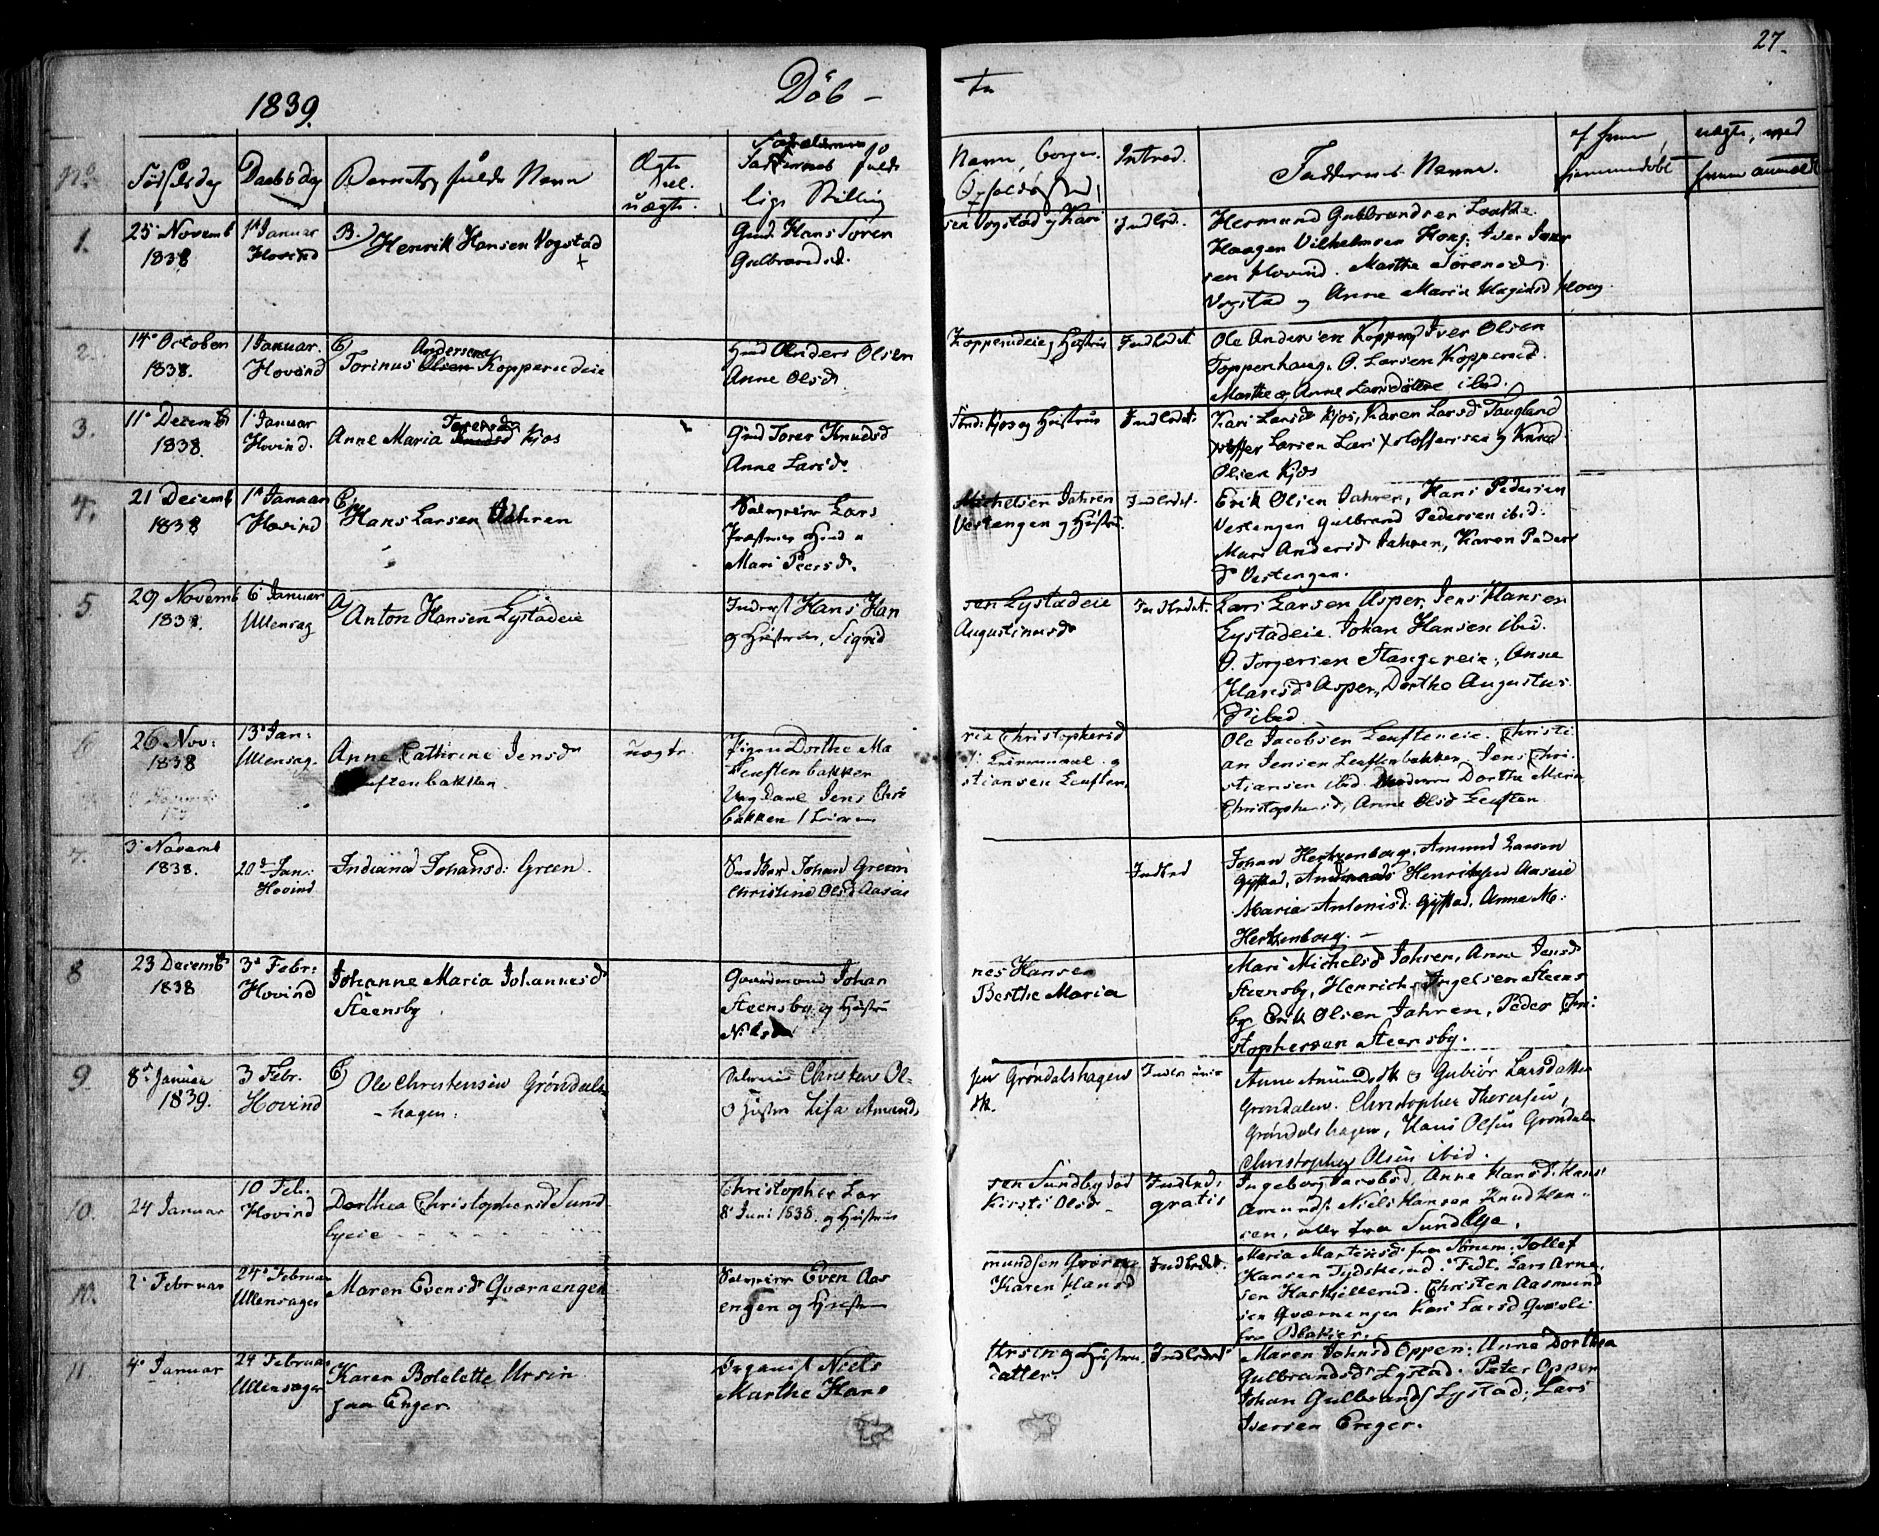 27.
1839.
Döb – te
No.
Födselsdag
Daabsdag
Barnets fulde Navn
Ægte
el.
uægte.
Forældrenes
fulde
lige Stilling
Navn, Borger.
Introd.
Faddernes Navne.
hjemmedöbt
1.
25 Novemb
1838
1 Januar
Hovind
B.
Henrik Hansen Vogstad
Hans Soren
Gulbrandsd.
sen Vogstad og Kari
Indled.
Hermund Gulbrandsen
Haagen Vilhelmsen Houg. Iver Iver
sen Hovind. Marthe Sörensd
Vogstad og Anne Maria Haagensd Houg
2.
14 October
1838.
1 Januar.
Hovind
Andersen
Torinus Olsen Kopperudeie
Anders Olsen
Anne Olsd.
Kopperudeie og Hustru
Indledt
Ole Andersen Kopperud Iver Olsen
Toppenhaug. O. Larsen Kopperud.
Marthe og Anne Larsdötre ibid.
3.
11 Decemb
1838.
1 Januar
Hovind.
Toresd
Anne Maria Knudsd Kjos
Gmd Torer Knuds
Anne Larsd.
Kjos og Hustru
Indledet.
Kari Larsd Kjos, Karen Larsd Taugland
Larsen og Knud
Olsen Kjos
4.
21 Decemb
1838
1 Januar
Hovind
Hans Larsen Jahren
Selveier Lars
Mari Peersd.
Michelsen Jahren
Vestengen og Hustru
Indledet.
Erik Olsen Jahren, Hans Pedersen
Vestengen Gulbrand Pedersen ibid.
Mari Andersd Jahren, Karen Peders
D Vestengen.
5
29 Novemb
1838.
6 Januar
Ullensag
Anton Hansen Lystadeie
Inderst Hans Han
og Hustru, Sigrid
sen Lystadeie
Augustinusd
Indledet.
Lars Larsen Asper, Jens Hansen
Lystadeie. Johan Hansen ibid.
O. Torgersen Stangereie, Anne
Hansd Asper, Dorthe Augustus
D ibid
6
26 Nov:
1838
13 Jan:
Ullensag.
Anne Cathrine Jensd
Leuftenbakken.
uægte.
Pigen Dorthe Ma
Leuftenbakken
Ung Karl Jens Chri
bakken
ria Christophersd
stiansen Leuften.
Ole Jacobsen Leufteneie. Christi
an Jensen Leuftenbakken Jens Chri
stiansen ibid Dorthe Maria
Christophersd, Anne Olsd Leuften
7.
3 Novemb
1838.
20 Jan:
Hovind
Indiana Johansd: Green.
Johan Green
Christine Olsd Aasäie
Indled
Johan Hertzenborg, Amund Larsen
Gystad, Henriksen Aaseie
Maria Antonisd: Gystad, Anne M:
Hertzenborg. –
8
23 Decemb
1838
3 Febr:
Hovind
Johanne Maria Johannesd
Steensby.
Gaardmand Johan
Steensby og Hustru
Nilsd
nes Hansen
Berthe Maria
Mari Michelsd Jahren, Anne Jensd
Steensby, Henrich Ingelsen Steens
by Erik Olsen Jahren, Peder Chri:
stophersen Steensby.
9.
8 Januar
1839.
3 Febr.
Hovind
Ole Christensen Gröndals
– hagen.
Selveier Christen Ol-
& Hustru Lisa Amunds
sen Gröndalshagen
dtr.
Anne Amundsdtr & Gubiör Larsdatter
Gröndalen. Christopher Thoresen,
Gröndalshagen, Hans Olsen Gröndalen
Christopher Olsen ibid.
10.
24 Januar
10 Feb.
Hovind
Dorthea Christophersd Sund
byeie
Christopher Lar
8 Juni 1838. og Hustru
sen Sundbyöd
Kirsti Olsd
Indled:
gratis
Ingeborg Jacobsd, Anne Hansd. Hans
Amunds. Niels Hansen Knud Han-
sen, alle fra Sundbye.
10.
2 Februar
24 Februar
Ullensager
Maren Evensd Qværnengen
Selveier Even Aas
engen og Hustru
mundsen Qværn
Karen Hansd
Indledet.
Maria Martinsd fra Tollef
Hansen Lars Arne
sen Christen Aasmund
sen Qværnengen Kari Larsd
fra Blakier.
11.
4 Januar
24 Februar
Ullensager
Karen Bolelette Ursin
paa Enger
Organist Niels
Marthe Hans
Ursin og Hustru
datter.
Indledet
Maren Johnsd Oppen. Anne Dorthea
Gulbrandsd Lystad. Peter Oppen
Johan Gulbrands Lystad. Lars
Iversen Enger.